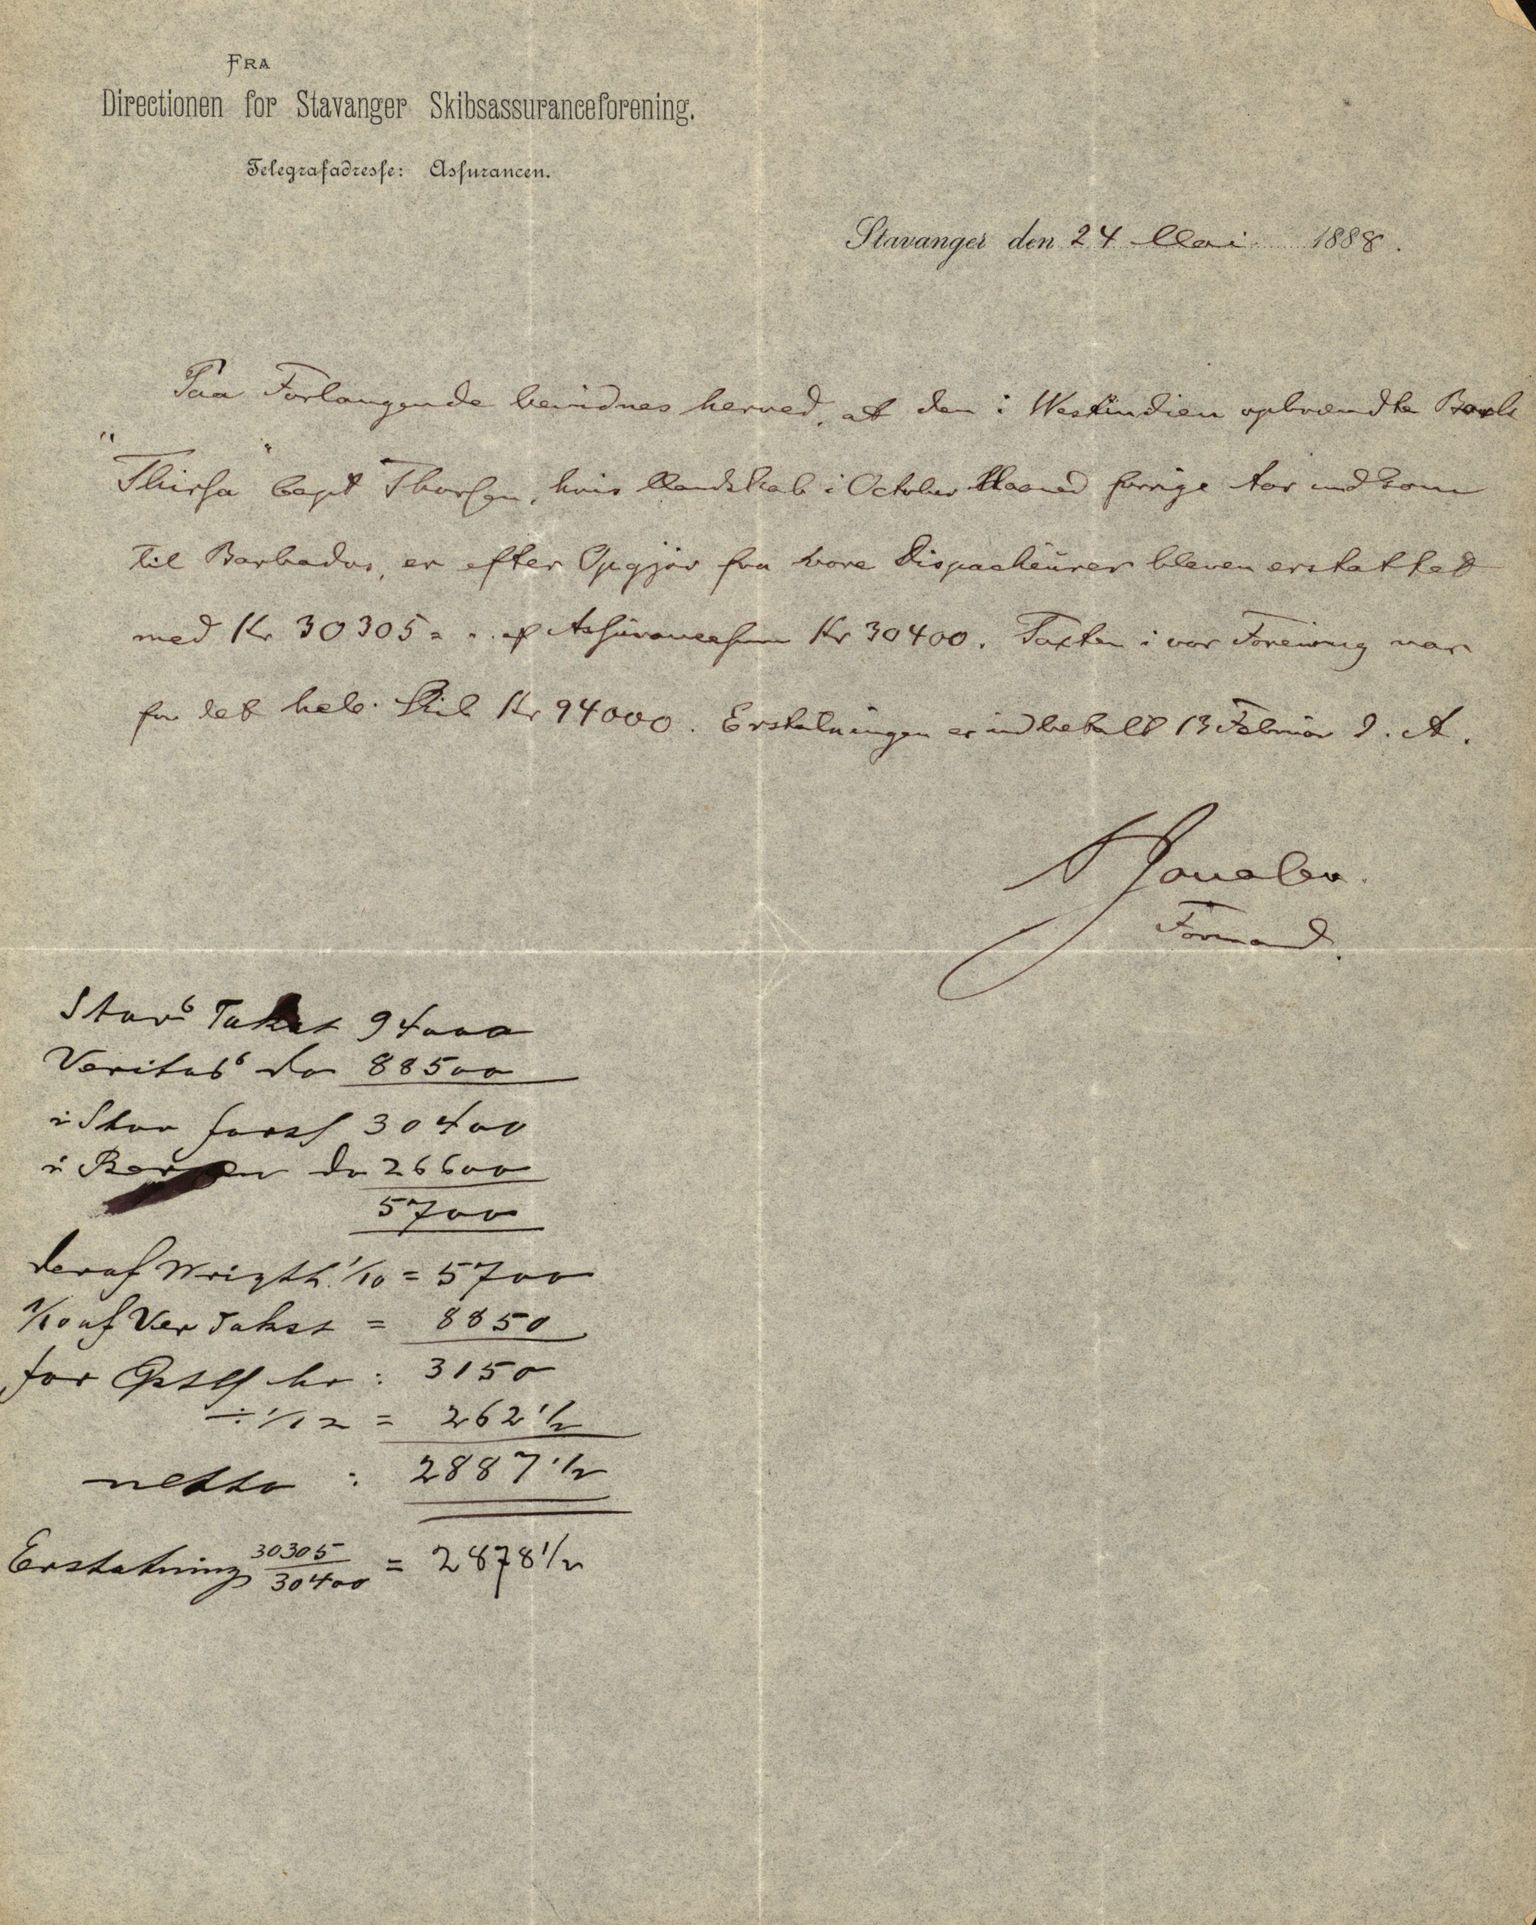 FRA
Directionen for Stavanger Skibsassuranceforening.
Telegrafadresse: Assurancen.
Stavanger den 24 Mai 1888.
Paa Forlangende bevidnes herved, at den i Westindien opbrændte Bark
"Thirsa" Capt Thorsen, hvis Mandskab i October Maaned forrige Aar indkom
til Barbados, er efter Opgjör fra vore Dispacheurer bleven erstattet
med Kr 30305 = af Assurancesum Kr 30400. Taxten i vor Forening var
for det hele Skib Kr 94000. Erstatningen er indbetalt 13 Februar d. A.
Formand.
Stavs Takst 94000
Veritas do 88500
i Stav forsf 30400
i Bergen do 26600
5700
deraf Wrigth. 1/10 = 5700
1/10 af Ver Takst = 8850
for kr: 3150
÷ 1/12 = 262 1/2
netto : 2887 1/2
Erstatning 30305/30400 = 2878 1/2